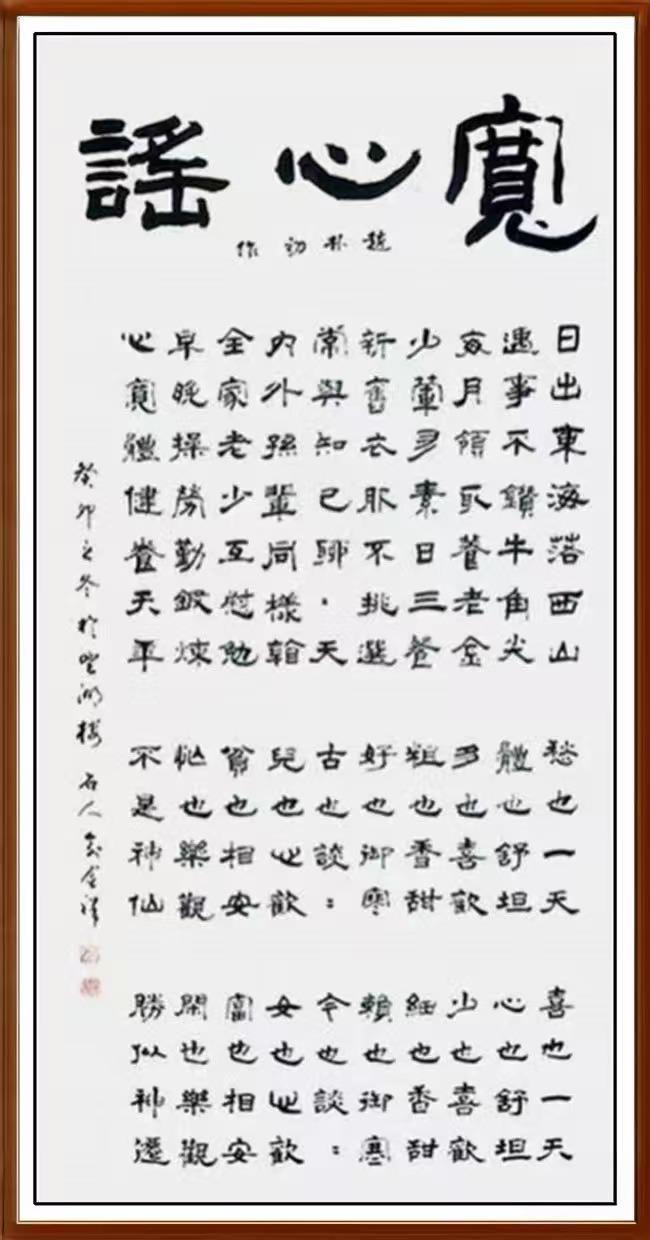 寬心謠
趙朴初作
日出東海落西山 愁也一天 喜也一天
遇事不鑽牛角尖 體也舒坦 心也舒坦
每月領取養老金 多也喜歡 少也喜歡
少葷多素日三餐 粗也香甜 細也香甜
新舊衣服不挑選 好也御寒 賴也御寒
常與知己聊、天 古也談： 今也談：
內外孫輩同樣 兒也心歡 女也心歡
全家老少互慰勉 貧也相安 富也相安
早晚操勞勤鍛煉 忙也樂觀 閑也樂觀
心寬體健養天年 不是神仙 勝似神遷
癸卯之冬於望湖樓 石人